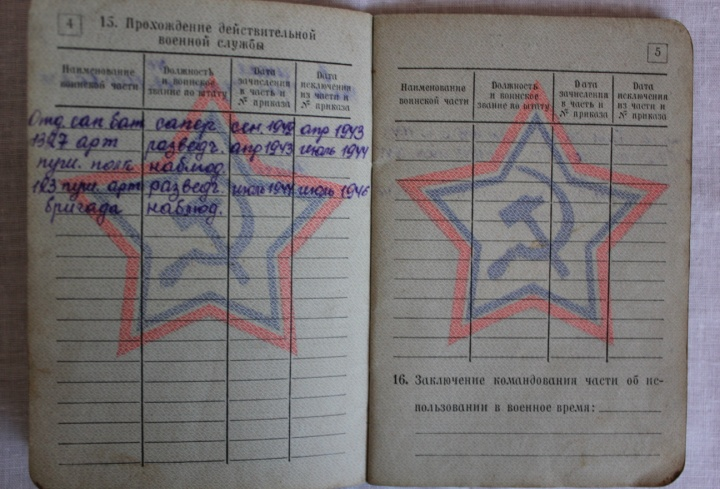 4
15. Прохождение действительной
военной службы
Наименование
воинской части
Должность
и воинское
звание по штату
Дата
зачисления
в часть и
№ приказа
Дата
исключения
из части и
№ приказа
Отд сап бат сапер. сен 1942 апр 1943
1327 арт разведч. апр 1943 июль 1944
пуш. полк наблюд.
183 пуш. арт разведч. июль 1944 июль 1946
бригада наблюд.
5
Наименование
воинской части
Должность
и воинское
звание по штату
Дата
зачисления
в часть и
№ приказа
Дата
исключения
из части и
№ приказа
16. Заключение командования части об ис-
пользовании в военное время: